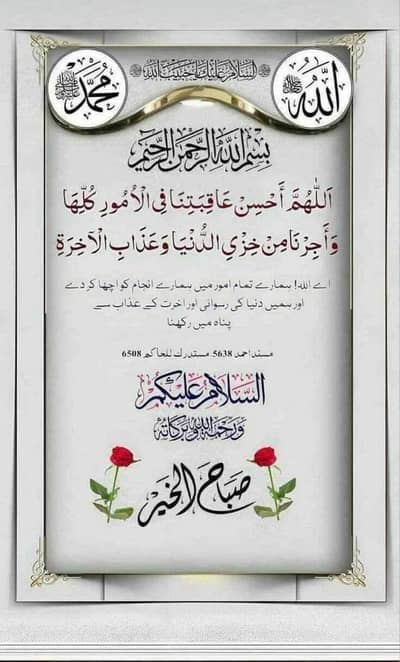 السلام علیک یا حبیب اللہ ﷺ
اللّٰه جل جلالہ
محمد ﷺ
بِسْمِ اللهِ الرَّحْمٰنِ الرَّحِيْمِ
اَللّٰهُمَّ أَحْسِنْ عَاقِبَتِنَا فِي الْاُمُورِ كُلِّهَا
وَأَجِرْنَا مِنْ خِزْيِ الدُّنْيَا وَعَذَابِ الْآخِرَةِ
اے اللہ! ہمارے تمام امور میں ہمارے انجام کو اچھا کر دے
اور ہمیں دنیا کی رسوائی اور اخرت کے عذاب سے
پناہ میں رکھنا
مسند احمد 5638. مستدرك للحاكم 6508
السَّلَامُ عَلَيْكُمْ
وَرَحْمَةُ اللهِ وَبَرَكَاتُهُ
صَبَاحُ الْخَيْر